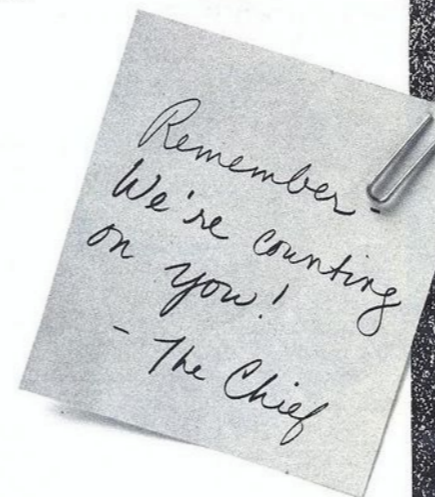 Remember -
We're counting
on you!
- The Chief